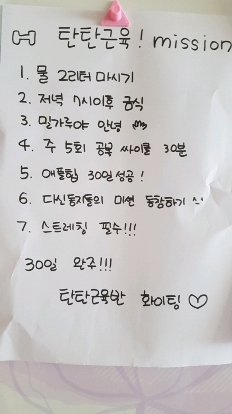 탄탄근육! mission
1. 물 2리터 마시기
2. 저녁 7시이후 금식
3. 밀가루야 안녕
4. 주 5회 공복 싸이클 30분
5. 애플힙 30일성공!
6. 다신동지들의 미션 동참하기 ^^
7. 스트레칭 필수!!!
30일 완주!!!
탄탄근육반 화이팅 ♡